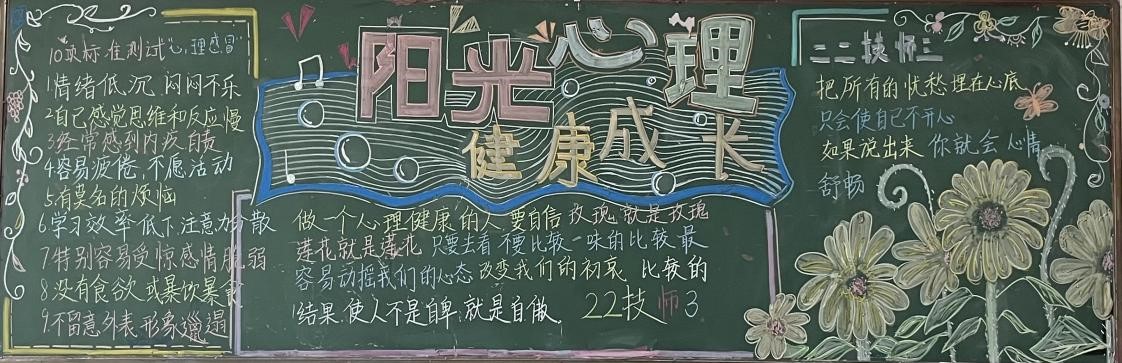 10项标准测试"心理感冒"
1情绪低沉 闷闷不乐
2自己感觉思维和反应慢
3经常感到内疚自责
4容易疲倦、不愿活动
5.有莫名的烦恼
6学习效率低下 注意力分散
7特别容易受惊感情脆弱
8没有食欲或暴饮暴食
9不留意外表形象邋遢
阳光心理
健康成长
做一个心理健康的人 要自信 玫瑰就是玫瑰
莲花就是莲花 只要去看 不要比较 一味的比较 最
容易动摇我们的心态 改变我们的初衷 比较的
结果,使人不是自卑,就是自傲,
22技师3
二二技师三
把所有的忧愁埋在心底
只会使自己不开心
如果说出来 你就会心情
舒畅